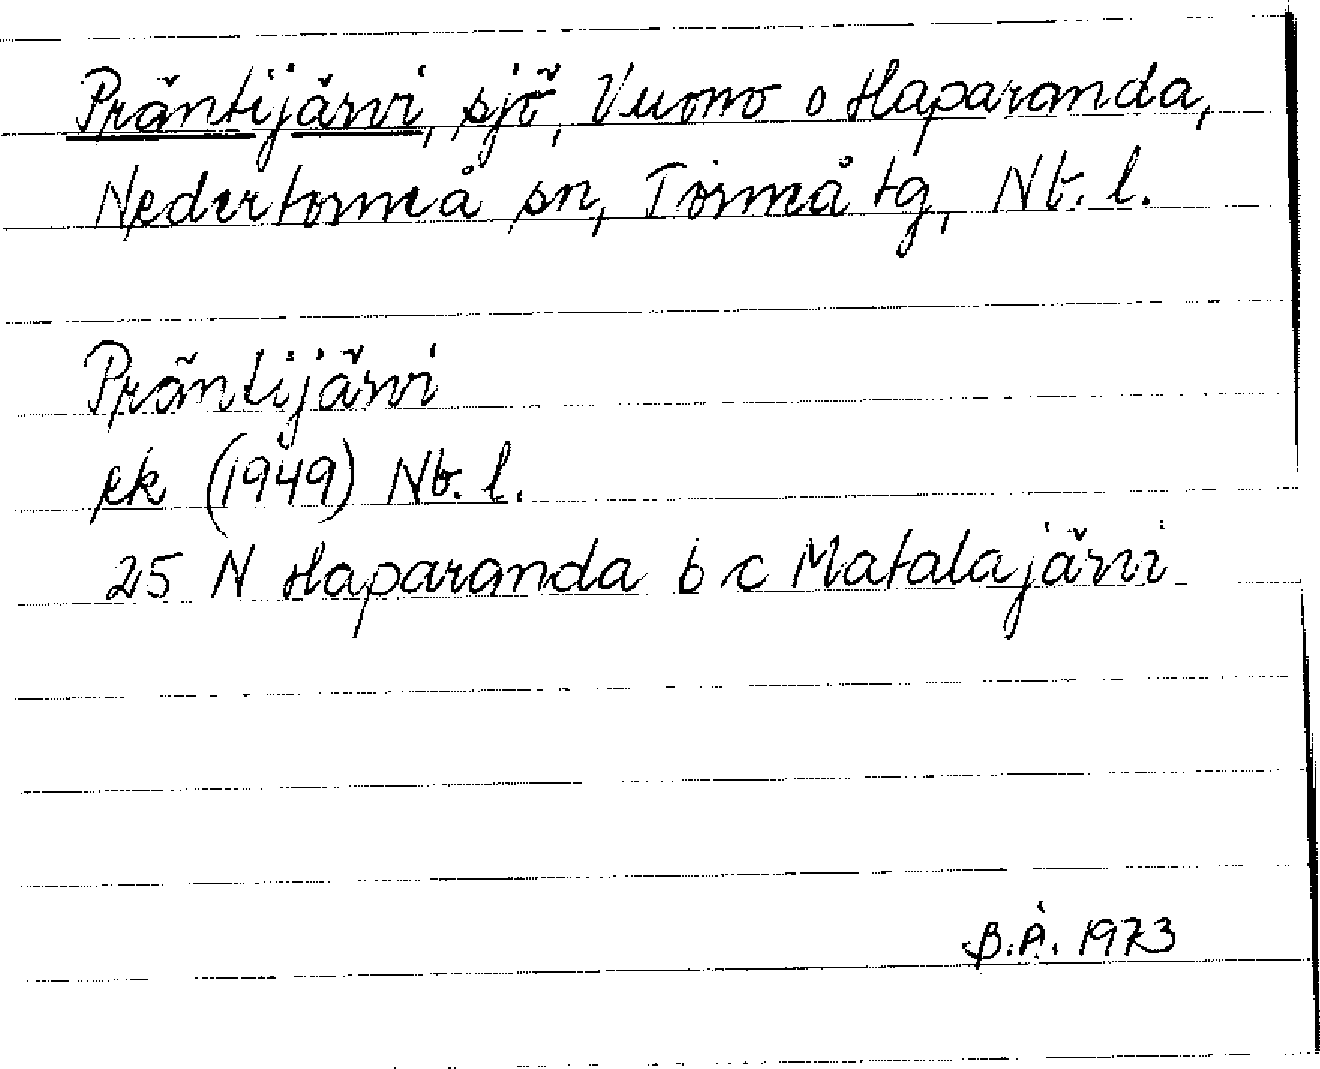 Präntijärvi, sjö, Vuono o Haparanda,
Nedertorneå sn, Torneå tg, Nb. l.
Präntijärvi
ek (1949) Nb. l.
25 N Haparanda b c Matalajärvi
B.Å. 1973